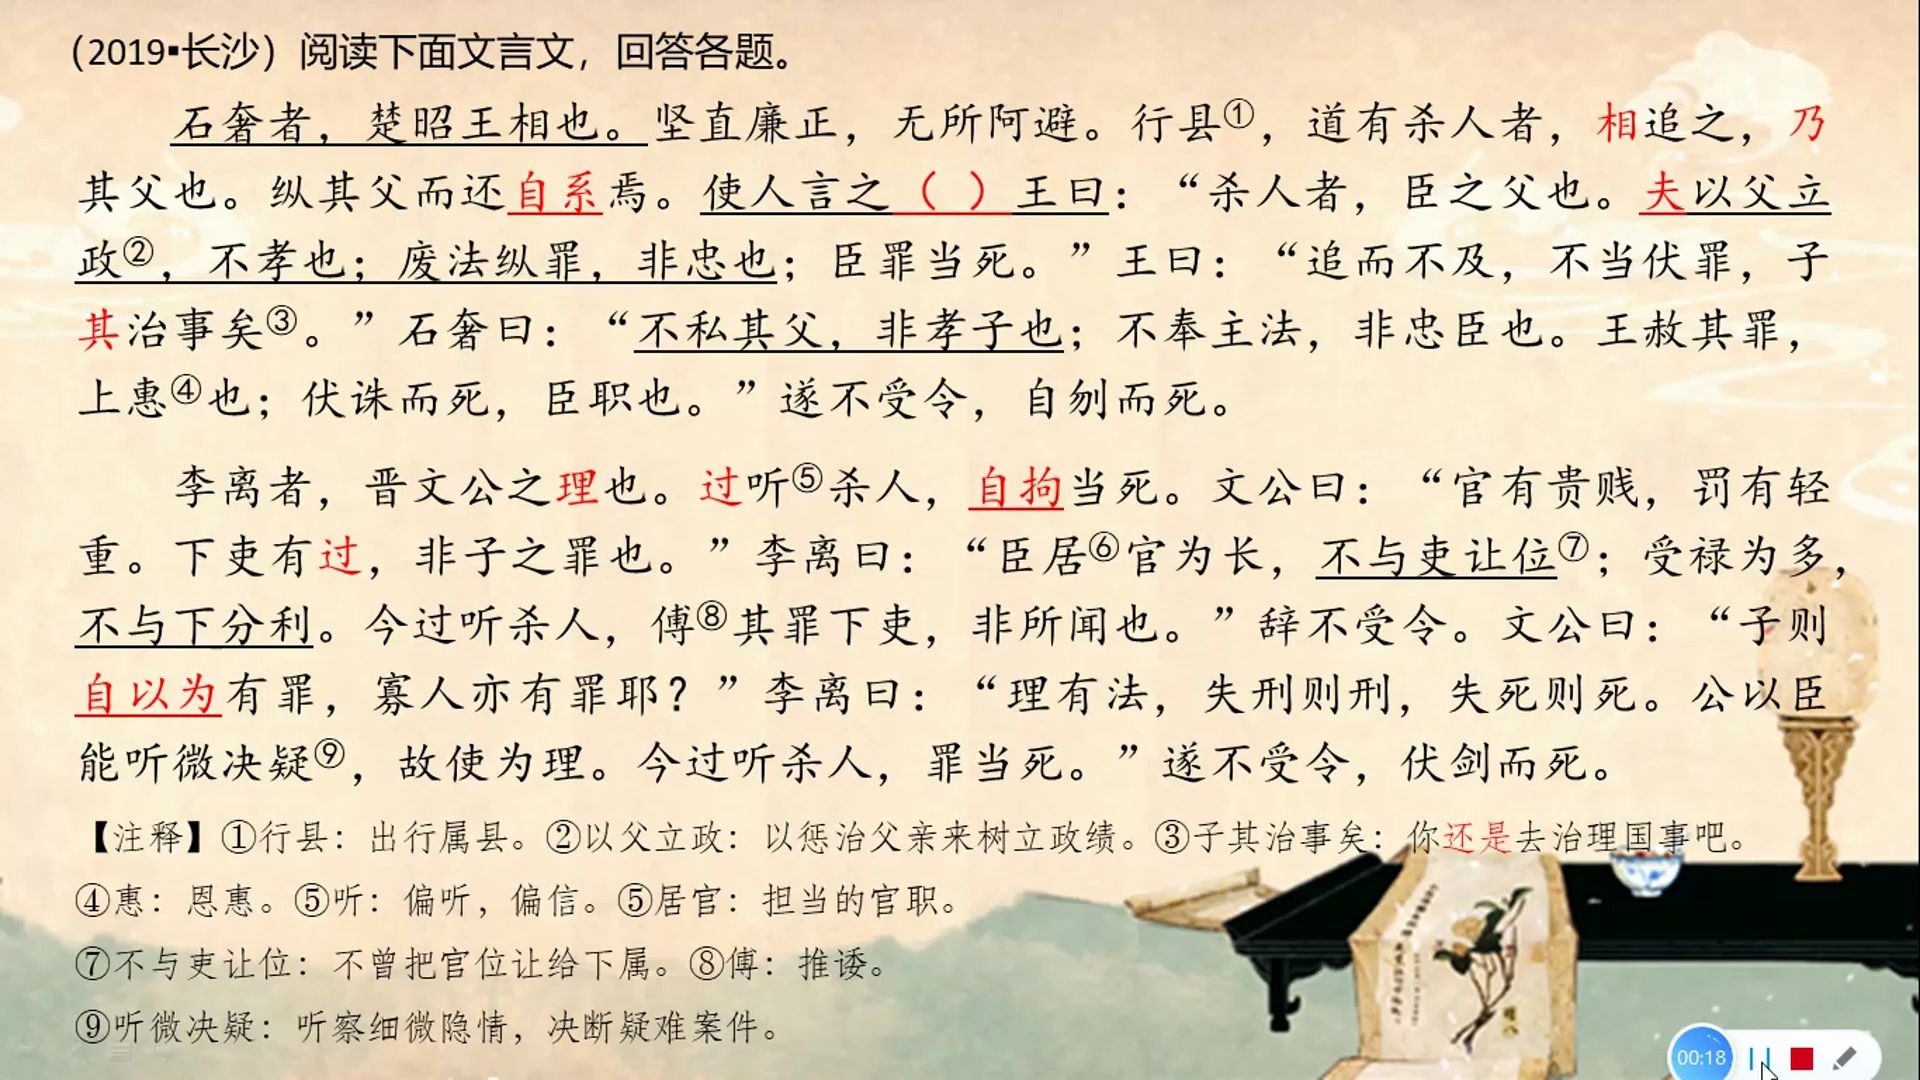 （2019▪长沙）阅读下面文言文，回答各题。
石奢者，楚昭王相也。坚直廉正，无所阿避。行县①，道有杀人者，相追之，乃
其父也。纵其父而还自系焉。使人言之（ ）王曰：“杀人者，臣之父也。夫以父立
政②，不孝也；废法纵罪，非忠也；臣罪当死。”王曰：“追而不及，不当伏罪，子
其治事矣③。”石奢曰：“不私其父，非孝子也；不奉主法，非忠臣也。王赦其罪，
上惠④也；伏诛而死，臣职也。”遂不受令，自刎而死。
李离者，晋文公之理也。过听⑤杀人，自拘当死。文公曰：“官有贵贱，罚有轻
重。下吏有过，非子之罪也。”李离曰：“臣居⑥官为长，不与吏让位⑦；受禄为多，
不与下分利。今过听杀人，傅⑧其罪下吏，非所闻也。”辞不受令。文公曰：“子则
自以为有罪，寡人亦有罪耶？”李离曰：“理有法，失刑则刑，失死则死。公以臣
能听微决疑⑨，故使为理。今过听杀人，罪当死。”遂不受令，伏剑而死。
【注释】①行县：出行属县。②以父立政：以惩治父亲来树立政绩。③子其治事矣：你还是去治理国事吧。
④惠：恩惠。⑤听：偏听，偏信。⑤居官：担当的官职。
⑦不与吏让位：不曾把官位让给下属。⑧傅：推诿。
⑨听微决疑：听察细微隐情，决断疑难案件。
00:18